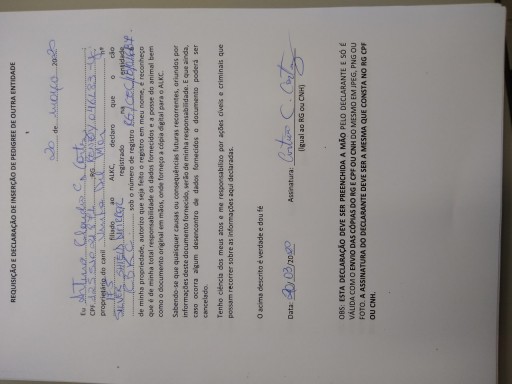 REQUISIÇÃO E DECLARAÇÃO DE INSERÇÃO DE PEDIGREE DE OUTRA ENTIDADE
20 de março 2020
Eu Claudio C.
CPF RG
proprietário do canil nº
filiado ao ALKC, declaro que o cão
registrado na entidade
sob o número de registro
de minha propriedade, autorizo que seja feito o registro em meu nome, e reconheço
que é de minha total responsabilidade os dados fornecidos e a posse do animal bem
como o documento original em mãos, onde forneço a cópia digital para o ALKC.
Sabendo-se que quaisquer causas ou consequências futuras recorrentes, oriundos por
informações deste documento fornecido, serão de minha responsabilidade. E que ainda,
caso ocorra algum desencontro de dados fornecidos o documento poderá ser
cancelado.
Tenho ciência dos meus atos e me responsabilizo por ações cíveis e criminais que
possam recorrer sobre as informações aqui declaradas.
O acima descrito é verdade e dou fé
Data: 20/03/2020 Assinatura:
(igual ao RG ou CNH)
OBS: ESTA DECLARAÇÃO DEVE SER PREENCHIDA A MÃO PELO DECLARANTE E SÓ É
VÁLIDA COM O ENVIO DAS CÓPIAS DO RG E CPF OU CNH DO MESMO EM JPEG, PNG OU
FOTO. A ASSINATURA DO DECLARANTE DEVE SER A MESMA QUE CONSTA NO RG CPF
OU CNH.